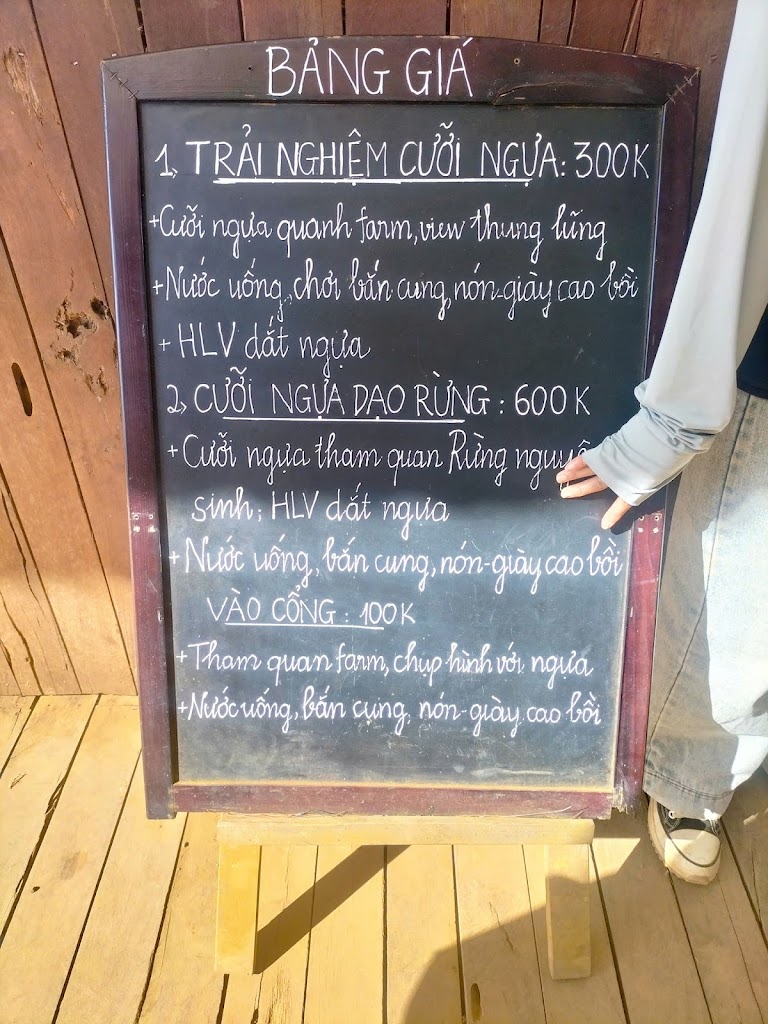 BẢNG GIÁ
1, TRẢI NGHIỆM CƯỠI NGỰA: 300K
+Cưỡi ngựa quanh farm, view thung lũng
+Nước uống, chơi bắn cung, nón-giày cao bồi
+ HLV dắt ngựa
2, CƯỠI NGỰA DẠO RỪNG: 600K
+ Cưỡi ngựa tham quan Rừng nguyê
sinh; HLV dắt ngựa
+ Nước uống, bắn cung, nón-giày cao bồi
VÀO CỔNG: 100K
+Tham quan farm, chụp hình với ngựa
+Nước uống, bắn cung, nón-giày cao bồi